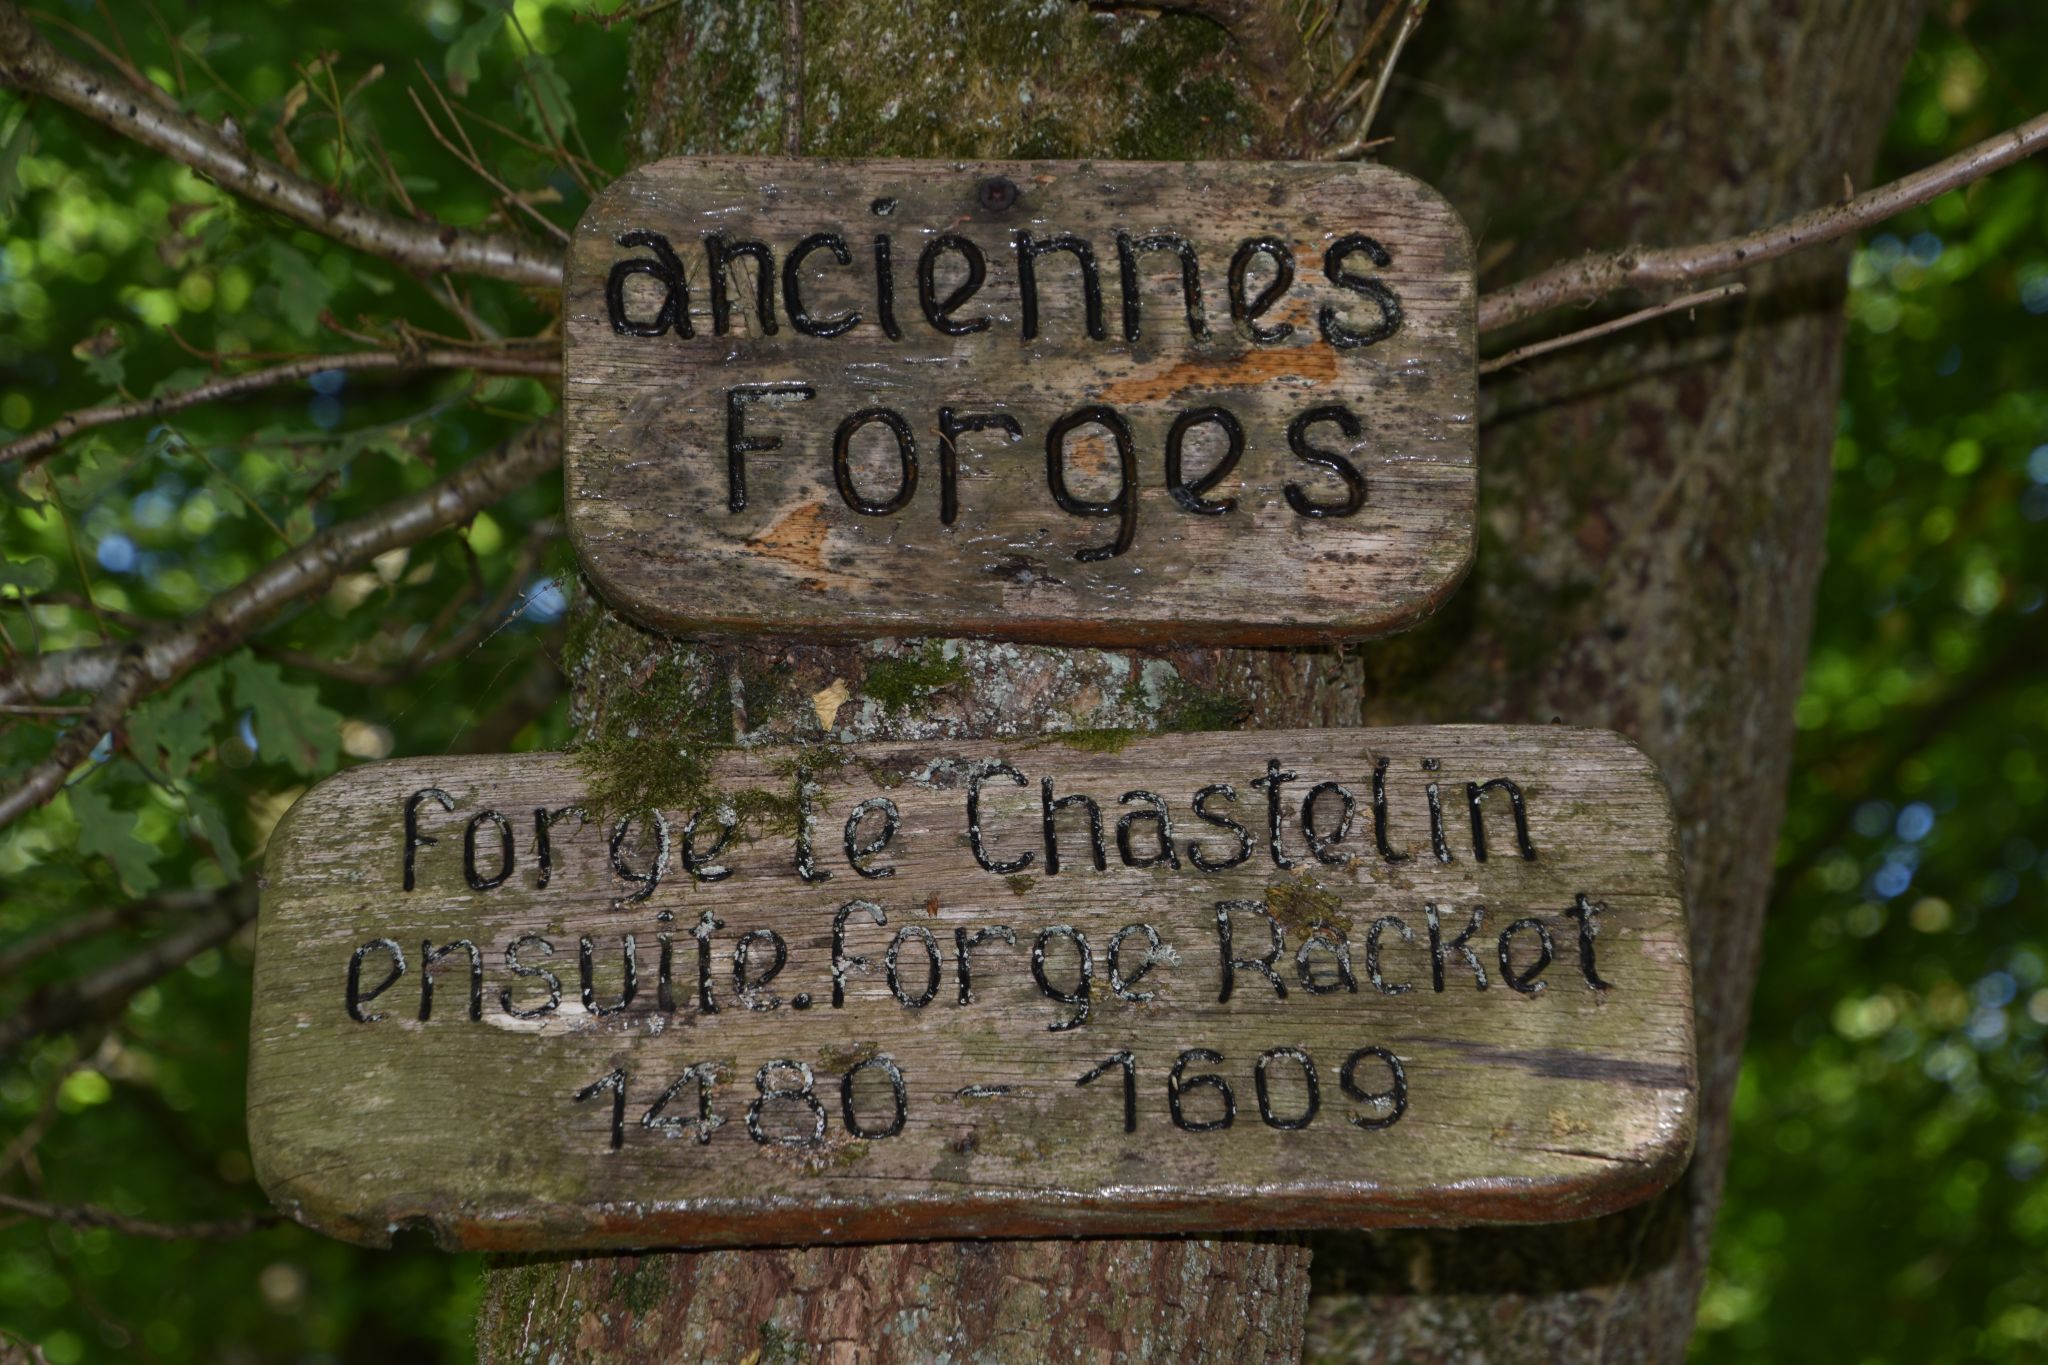 anciennes
Forges
forge le Chastelin
ensuite.forge Racket
1480 - 1609